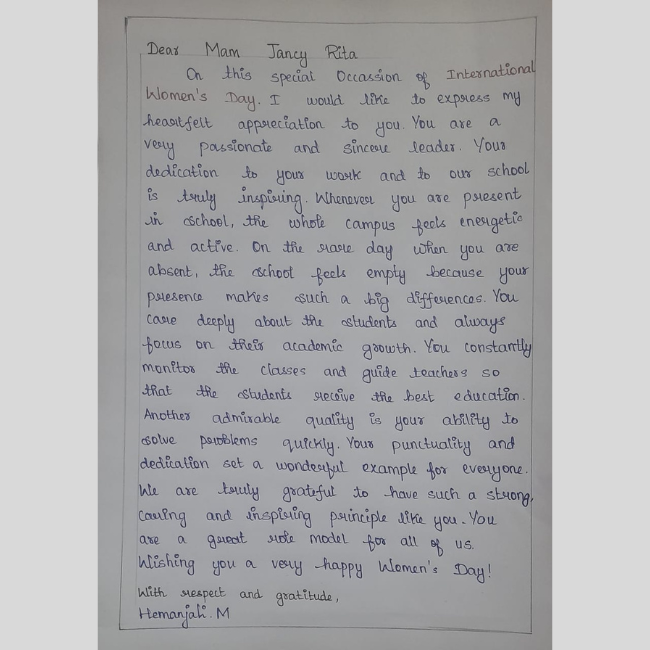 Dear Mam Jancy Rita
On this special Occassion of International
Women's Day. I would like to express my
heartfelt appreciation to you You are a
very passionate and sincere leader. Your
dedication to your work and to our school
is truly inspiring. Whenever you are present
in school, the whole campus feels energetic
and active. On the rare day when you are
absent, the school feels empty because your
presence makes such a big differences. You
care deeply about the students and always
focus on their academic growth. You constantly
monitor the classes and guide teachers so
that the students receive the best education.
Another admirable quality is your ability to
solve problems quickly. Your punctuality and
dedication set a wonderful example for everyone.
We are truly grateful to have such a strong,
caring and inspiring principle like you. You
are a great role model for all of us.
Wishing you a very happy Women's Day!
With respect and gratitude,
Hemanjali. M